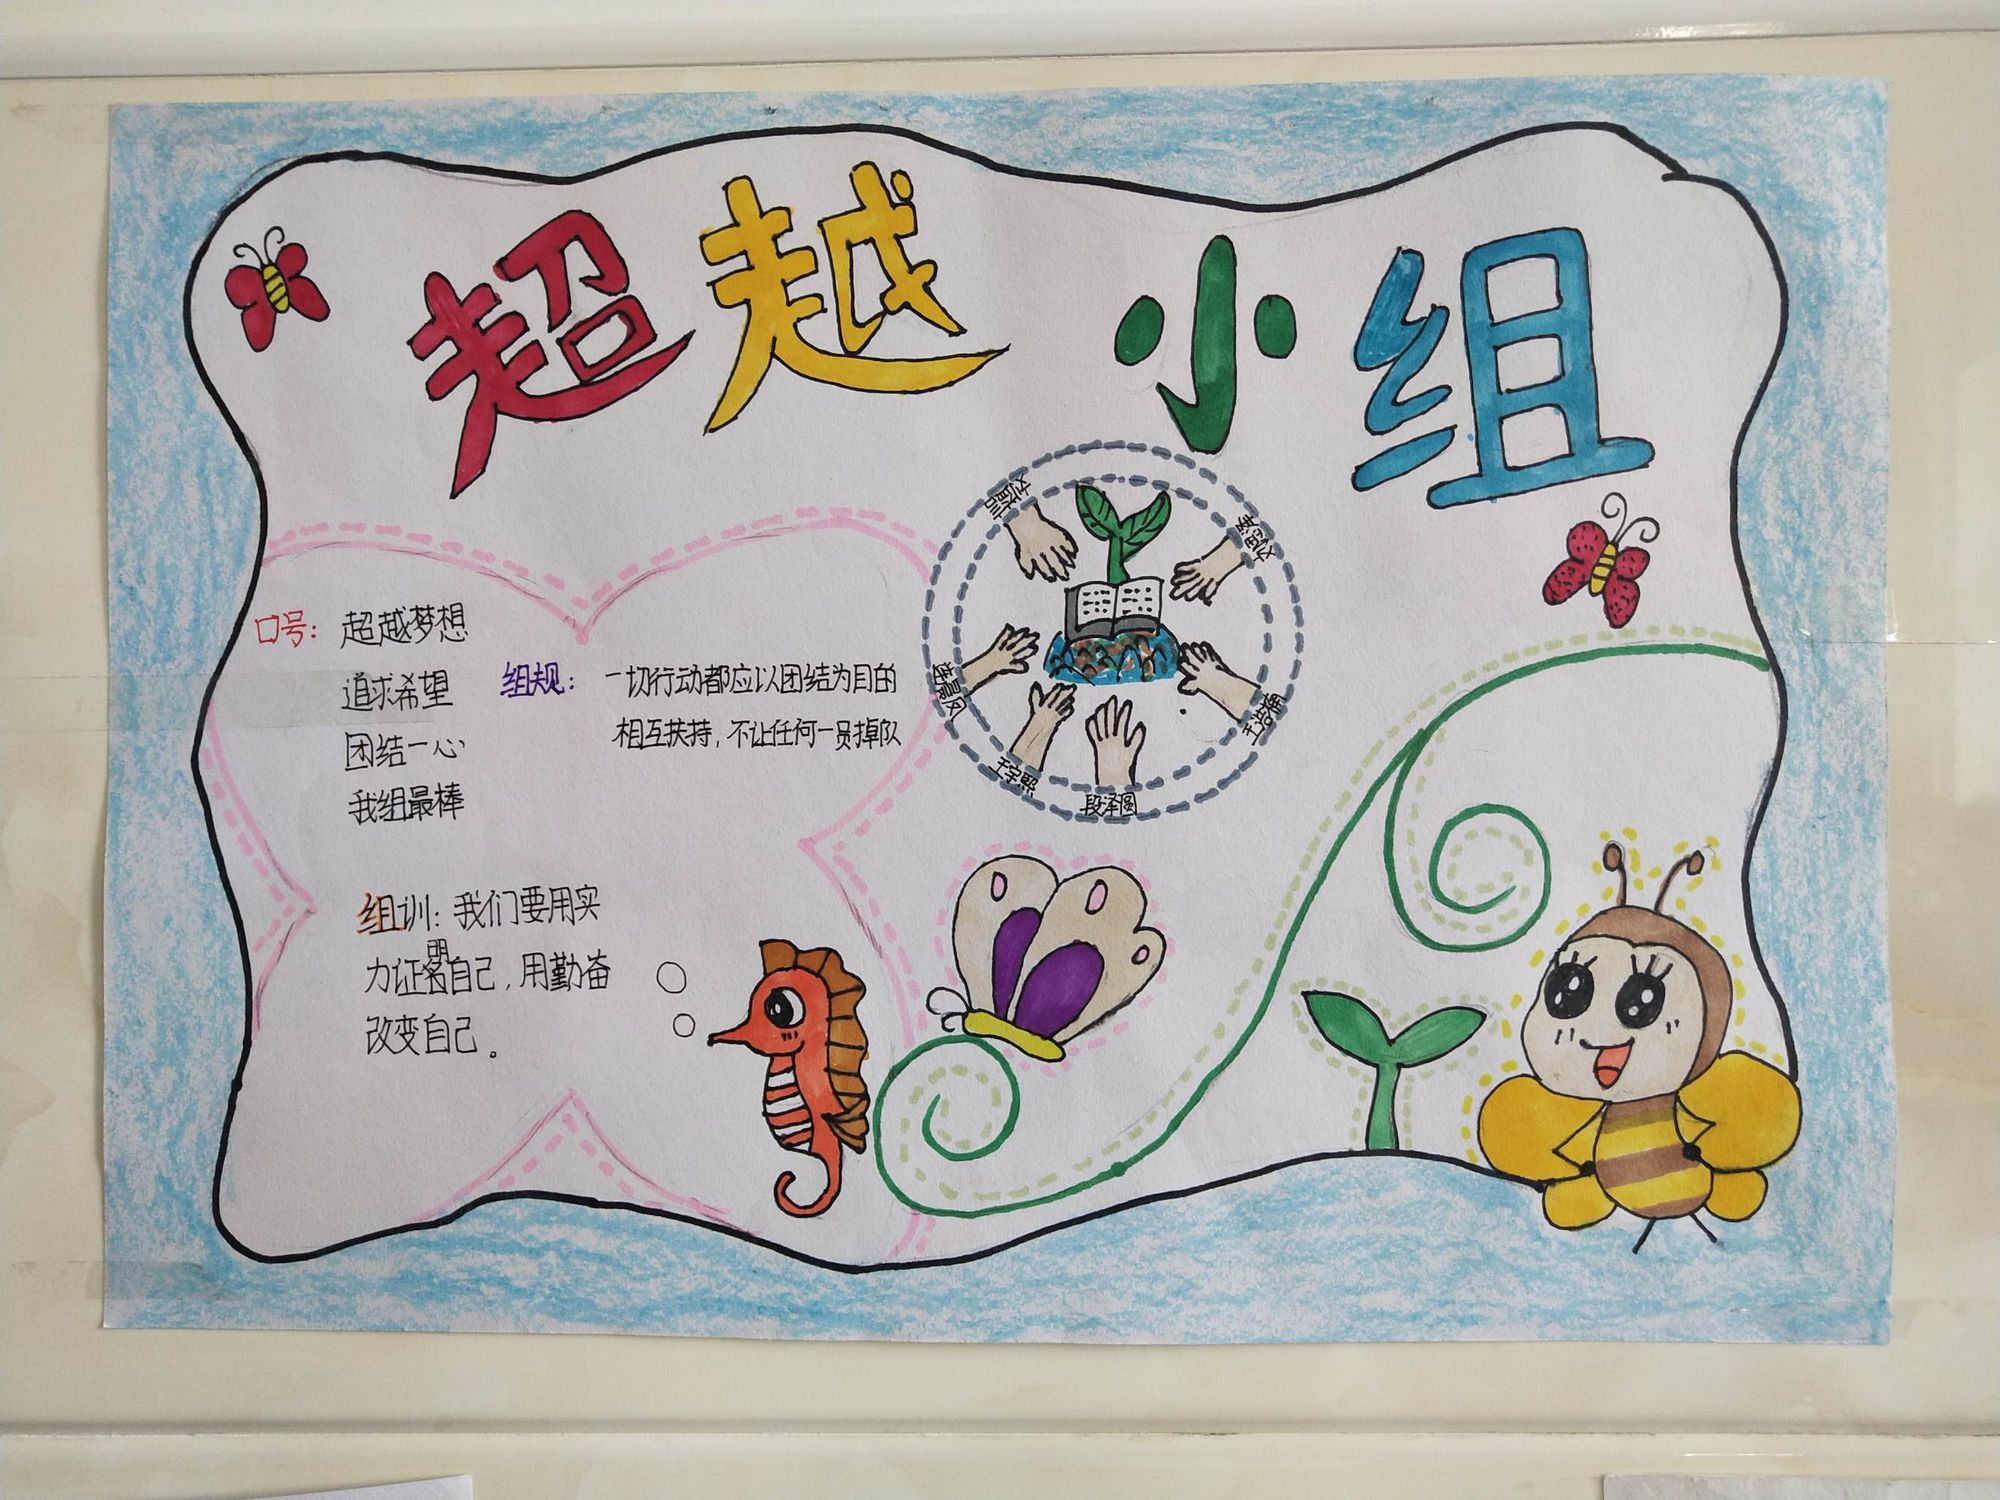 超越小组
口号：超越梦想
追求希望
团结一心
我组最棒
组规：一切行动都应以团结为目的
相互扶持，不让任何一员掉队
组训：我们要用实
力证明自己，用勤奋
改变自己。
王浩楠
王宇熙
段泽圆